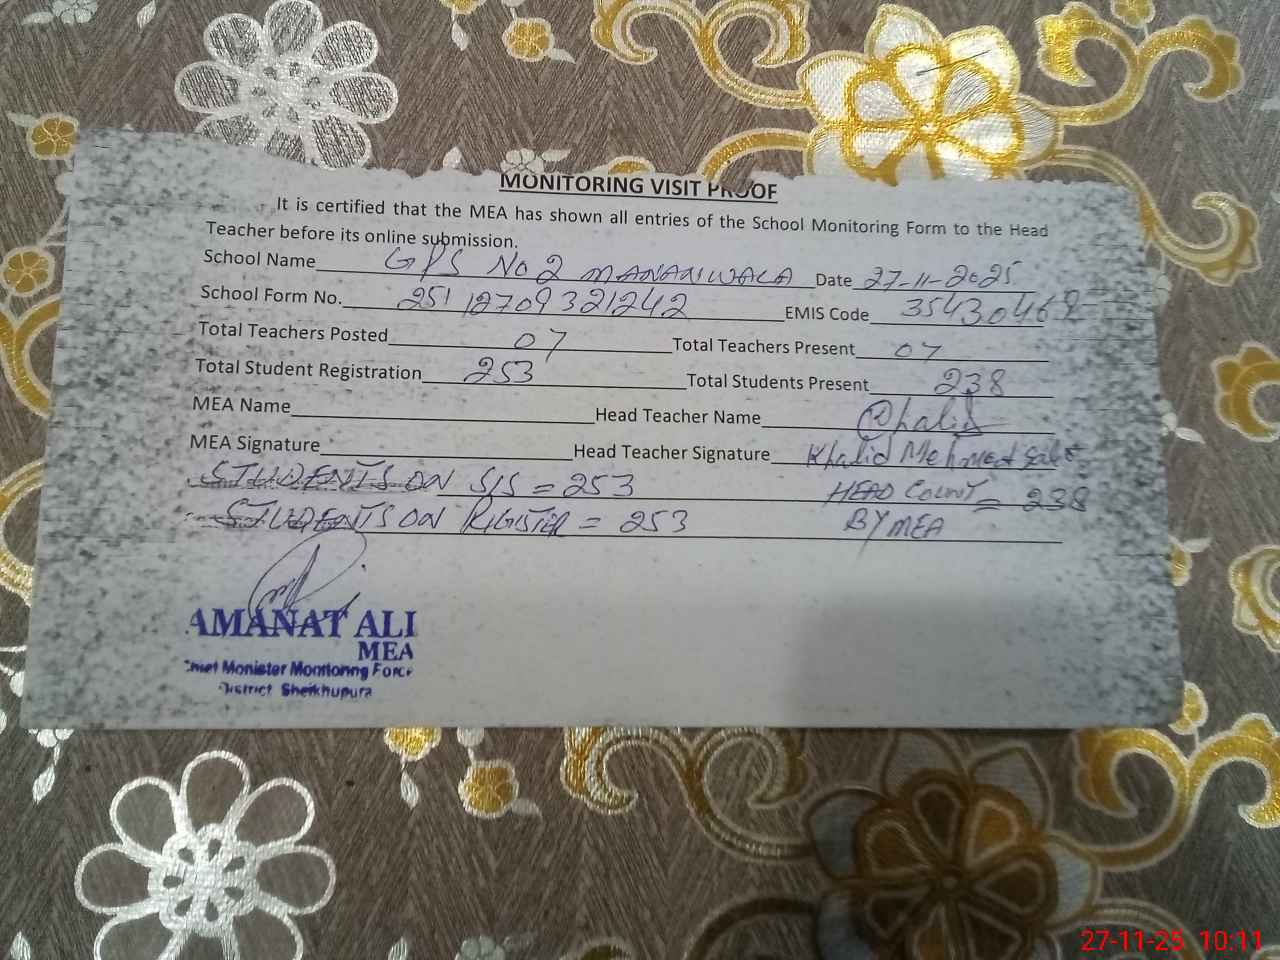 MONITORING VISIT PROOF
It is certified that the MEA has shown all entries of the School Monitoring Form to the Head
Teacher before its online submission.
School Name GPS No 2 MANANWALA Date 27-11-2025
School Form No. 251127093 21242 EMIS Code 35430469
Total Teachers Posted 07 Total Teachers Present 07
Total Student Registration 253 Total Students Present 238
MEA Name Head Teacher Name Khalid
MEA Signature Head Teacher Signature Khalid Mehmood
STUDENTS ON SIS = 253 HEAD COUNT = 238
STUDENTS ON REGISTER = 253 BY MEA
AMANAT ALI
MEA
Chief Monister Monitoring Force
District Sheikhupura
27-11-25 10:11